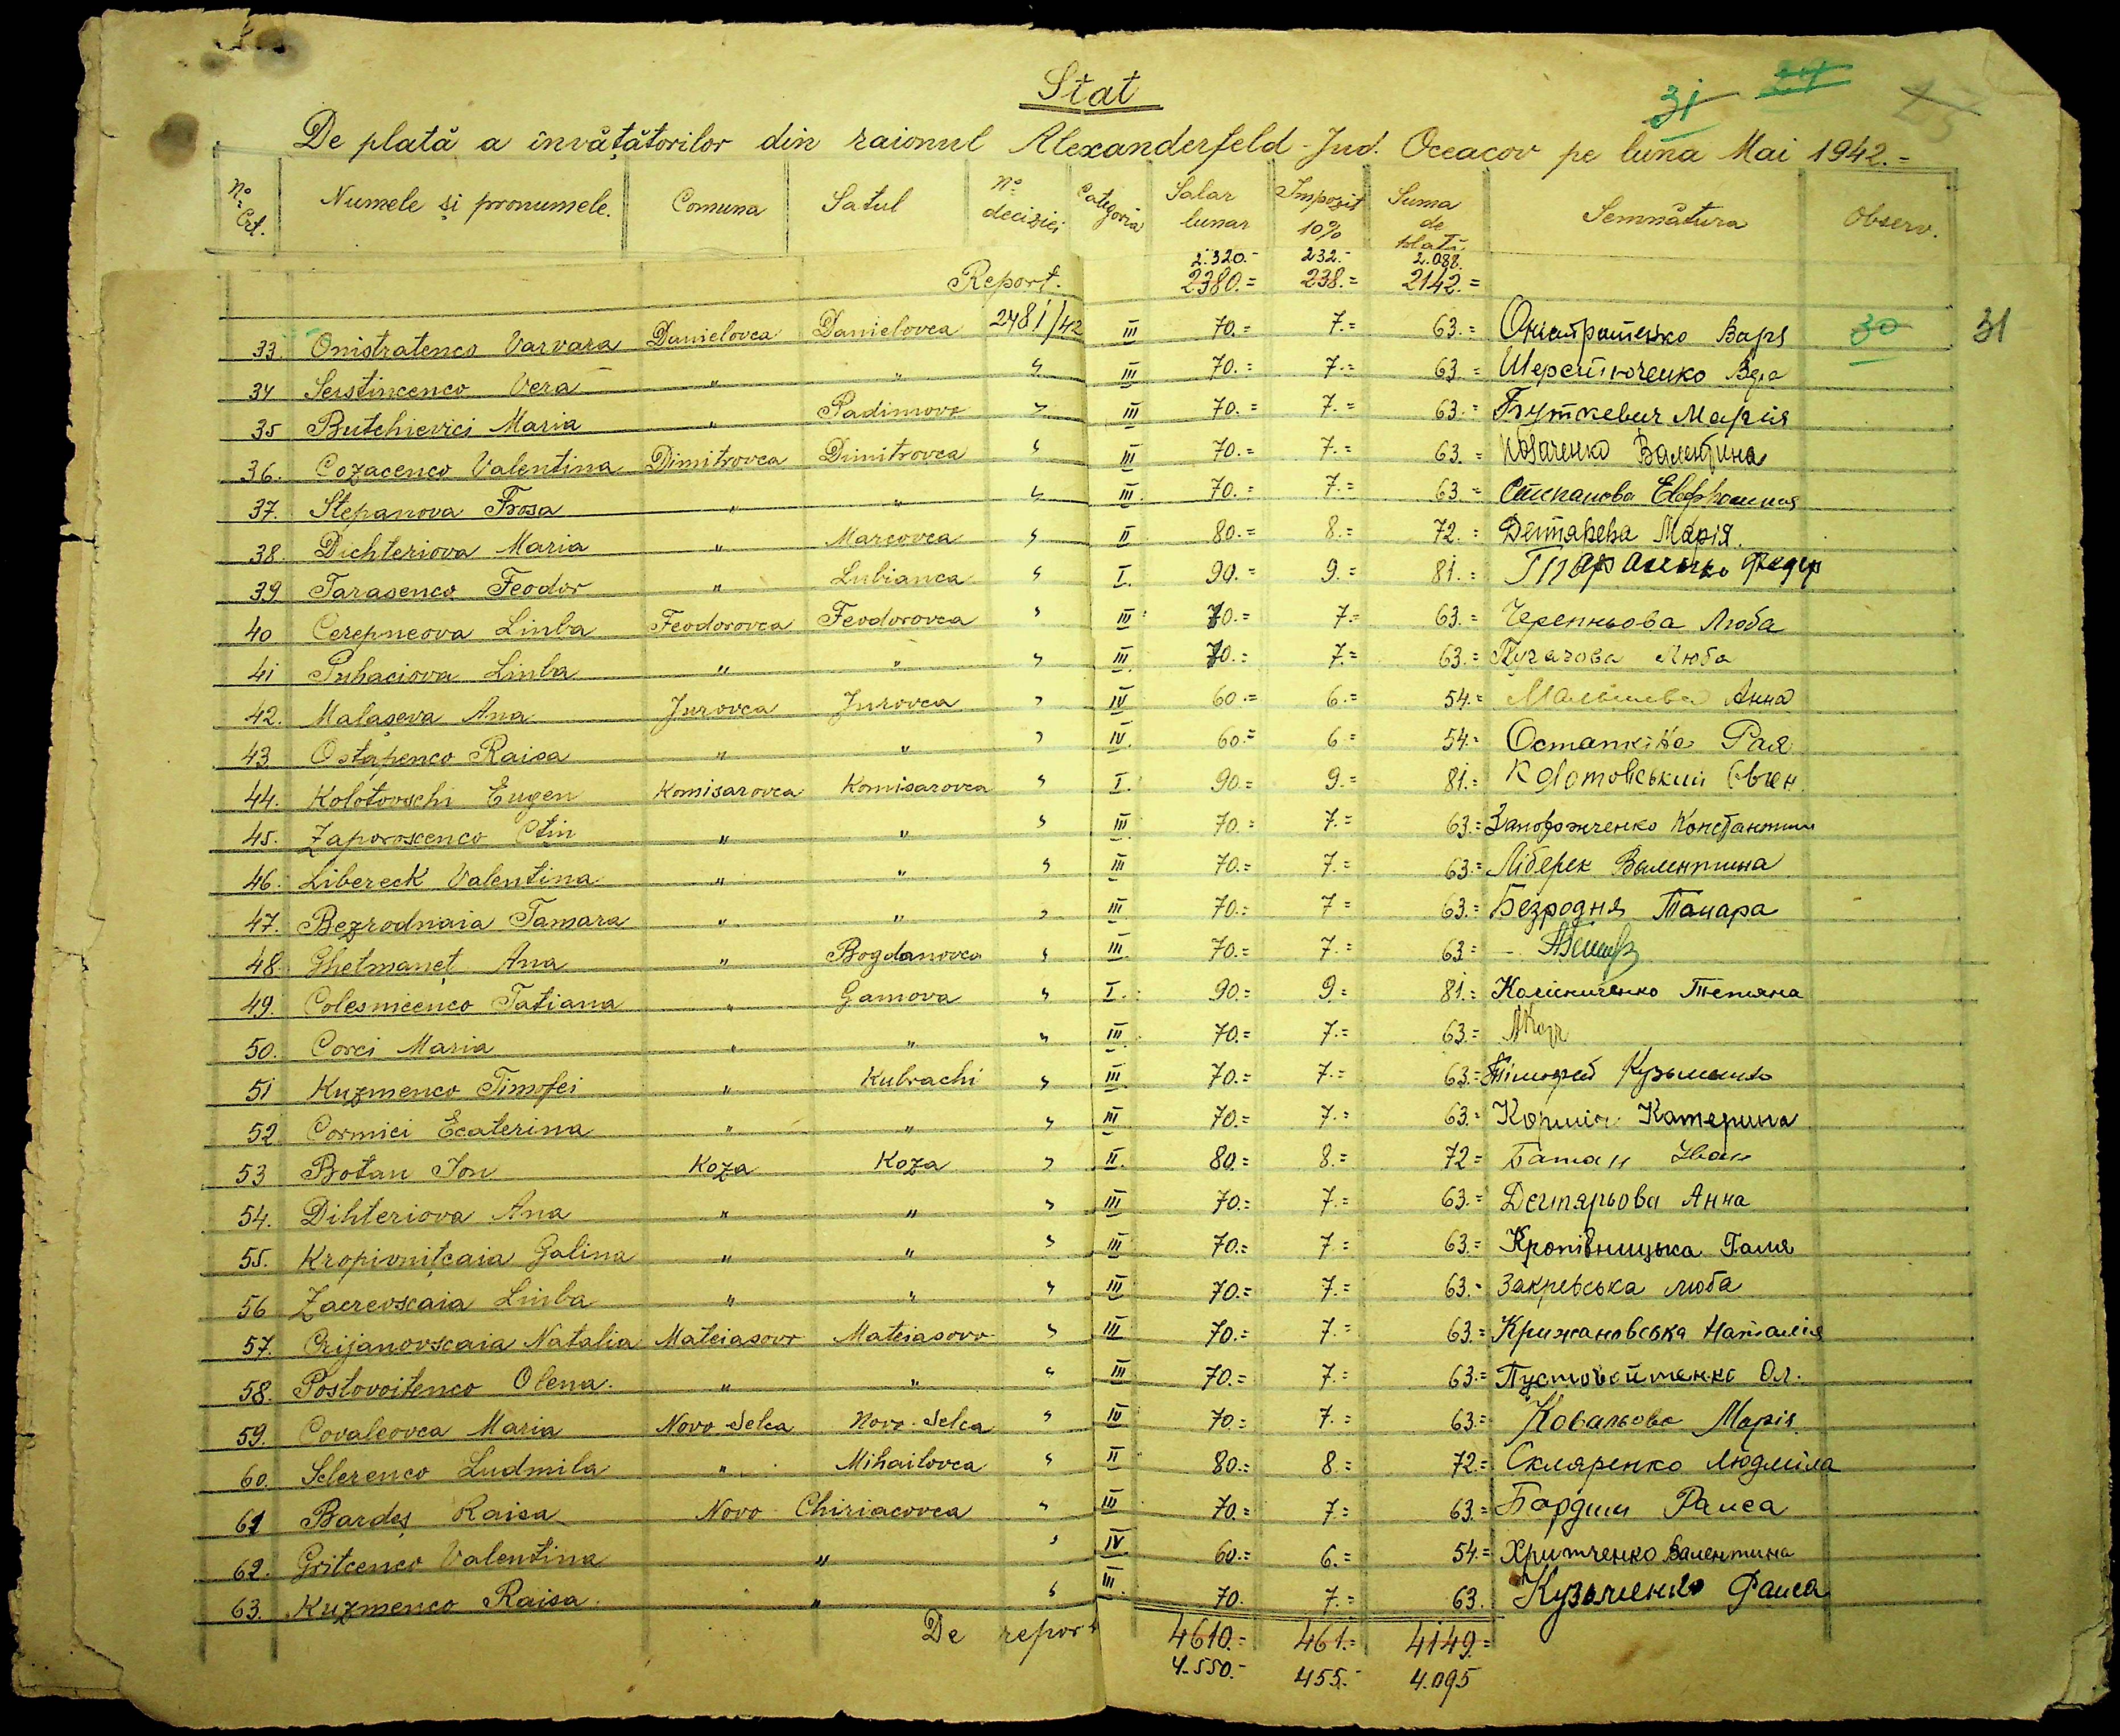 Stat
31 27 25
De plată a învățătorilor din raionul Alexanderfeld - Jud. Oceacov pe luna Mai 1942.=
No Crt. Numele și pronumele. Comuna Satul No deciziei Categoria Salar lunar Impozit 10% Suma de plată Semnătura Observ.
2.320.- 232.- 2.088.
Report. 2380.= 238.= 2142.=
33. Onistratenco Varvara Danielovca Danielovca 2481/42 III 70.= 7.= 63.= Оністратенко Варя 30 31
34 Serstincenco Vera " " " III 70.= 7.= 63.= Шерстюченко Вера
35 Butchievici Maria " Radimovo " III 70.= 7.= 63.= Буткевич Марія
36. Cozacenco Valentina Dimitrovca Dimitrovca " III 70.= 7.= 63.= Козаченко Валентина
37. Stepanova Frosa " " " III 70.= 7.= 63= Степанова Евфросиния
38. Dichteriova Maria " Marcovca " II 80.= 8.= 72.= Дегтярева Марія.
39. Tarasenco Feodor " Lubianca " I. 90.= 9.= 81.= Тарасенко Федір
40 Cerepneova Liuba Feodorovca Feodorovca " III 70.= 7.= 63.= Черепньова Люба
41 Puhaciova Liuba " " " III 70.= 7.= 63.= Пугачова Люба
42. Malașeva Ana Jurovca Jurovca " IV 60.= 6.= 54.= Малышева Анна
43. Ostapenco Raisa " " " IV. 60.= 6.= 54.= Рая
44. Kolotovschi Eugen Komisarovca Komisarovca " I. 90.= 9.= 81.= Колотовський Євген
45. Zaporoscenco Ctin " " " III 70.= 7.= 63.= Запорожченко Константин
46. Libereck Valentina " " " III 70.= 7.= 63.= Ліберек Валентина
47. Bezrodnaia Tamara " " " III 70.= 7= 63.= Безродня Тамара
48. Ghetmaneț Ana " Bogdanovca " III 70.= 7.= 63=
49. Colesnicenco Tatiana " Gamova " I. 90.= 9.= 81.= Тетяна
50. Corci Maria " " " III 70.= 7.= 63.=
51 Kuzmenco Timofei " Kubrachi " III 70.= 7.= 63.= Тімофей Кузьменко
52 Cormici Ecaterina " " " III 70.= 7.= 63.= Корміч Катерина
53 Botan Ion Koza Koza " II. 80.= 8.= 72= Батан Іван
54. Dihteriova Ana " " " III 70.= 7.= 63.= Дегтярьова Анна
55. Kropivnițcaia Galina " " " III 70.= 7= 63.= Кропівницька Галя
56 Zacrevscaia Liuba " " " III 70.= 7.= 63.= Закревська Люба
57. Crijanovscaia Natalia Mateiasovo Mateiasovo " III 70.= 7.= 63.= Крижановська Наталія
58. Postovoitenco Olena. " " " III 70.= 7.= 63.= Пустовойтенко Ол.
59. Covaleovca Maria Novo-Selca Novo-Selca " IV 70.= 7.= 63= Ковальова Марія
60. Sclerenco Ludmila " Mihailovca " II 80.= 8= 72.= Скляренко Людміла
61 Bardeș Raisa Novo Chiriacovca " III 70.= 7= 63.= Раиса
62. Gritcenco Valentina " " IV. 60.= 6.= 54.= Хритченко Валентина
63. Kuzmenco Raisa. " " III. 70. 7.= 63. Кузьменко Раиса
De report 4610.= 461.= 4149.=
4.550.- 455.- 4.095